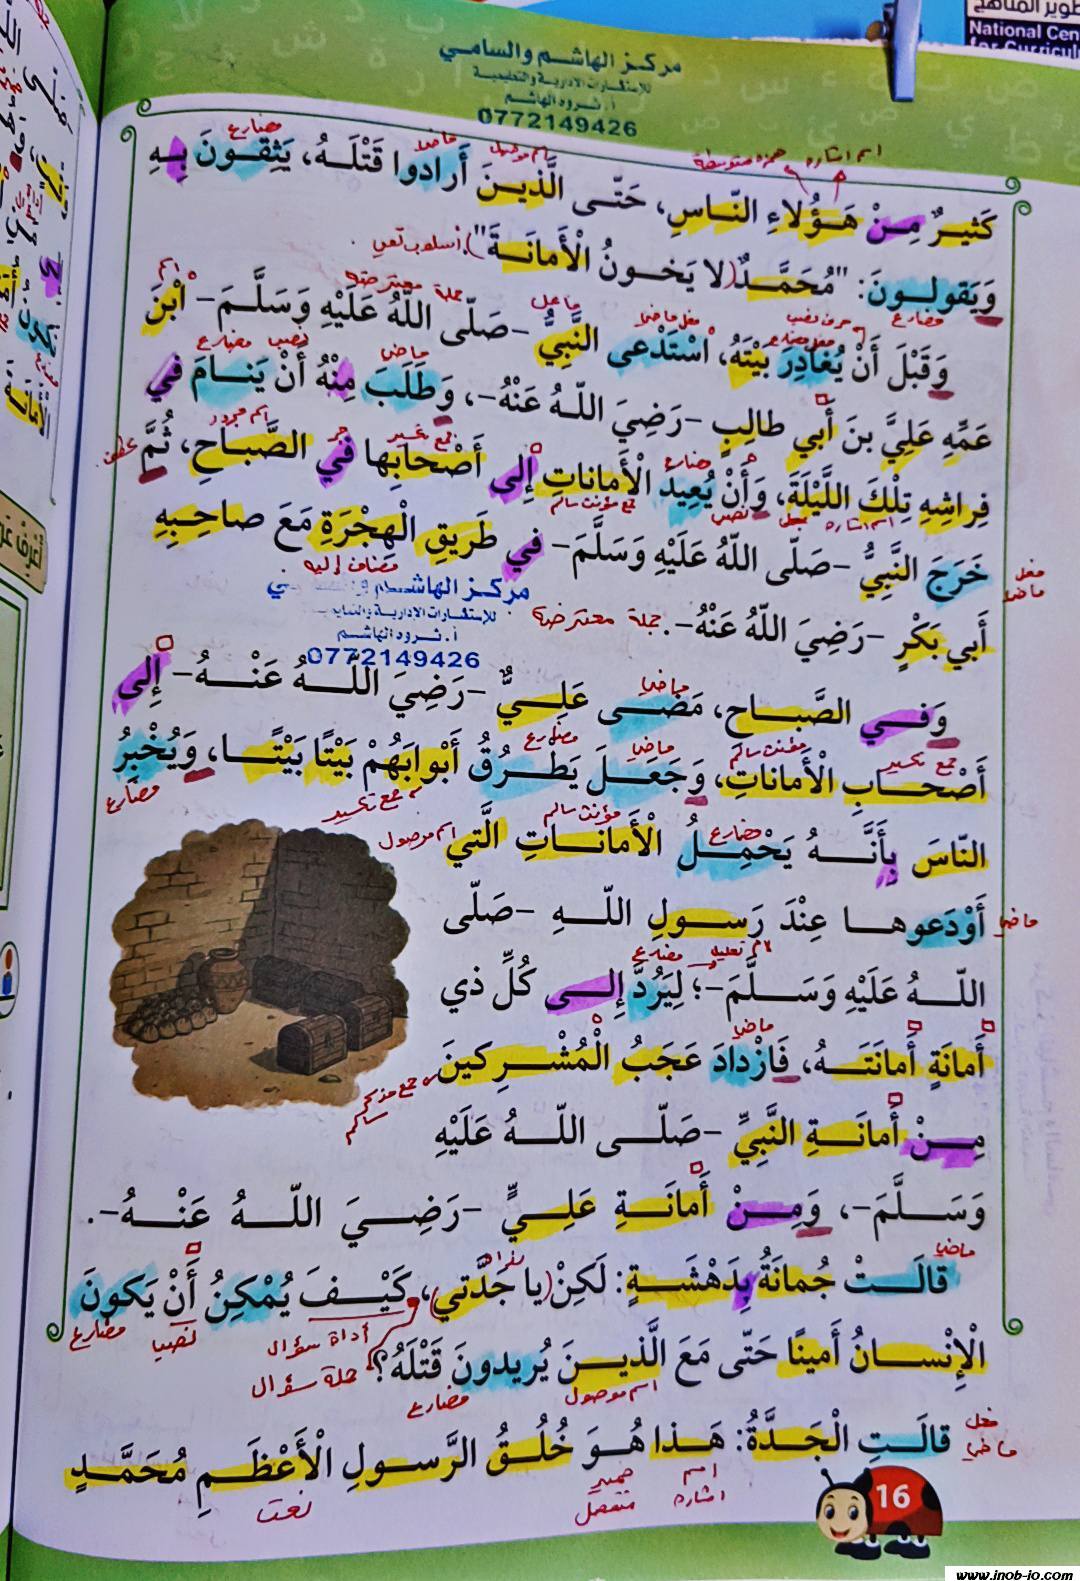 تطوير المناهج
National Cen
for Curricul
مركز الهاشم والسامي
للإستشارات الادارية والتعليمية
أ. ثرود الهاشم
0772149426
اسم اشارة همزة متوسطة
اسم موصول ماضي مضارع
كَثيرٌ مِنْ هَؤُلاءِ النّاسِ، حَتّى الَّذينَ أَرادوا قَتْلَهُ، يَثِقونَ بِهِ
وَيَقولونَ: "مُحَمَّدٌ (لا يَخونُ الْأَمانَةَ)". أسلوب نفي.
مضارع حرف نصب فعل مضارع فعل ماضي فاعل جملة معترضة اسم
وَقَبْلَ أَنْ يُغادِرَ بَيْتَهُ، اسْتَدْعى النَّبِيُّ -صَلّى اللّهُ عَلَيْهِ وَسَلَّمَ- ابْنَ
ماضي نصب مضارع
عَمِّهِ عَلِيَّ بنَ أَبي طالِبٍ -رَضِيَ اللّهُ عَنْهُ-، وَطَلَبَ مِنْهُ أَنْ يَنامَ في
مضارع جمع تكسير جر اسم مجرور عطف
فِراشِهِ تِلْكَ اللَّيْلَةَ، وَأَنْ يُعِيدَ الْأَماناتِ إِلى أَصْحابِها في الصَّباحِ، ثُمَّ
اسم اشارة نصب جمع مؤنث سالم
فعل ماضي خَرَجَ النَّبِيُّ -صَلّى اللّهُ عَلَيْهِ وَسَلَّمَ- في طَريقِ الْهِجْرَةِ مَعَ صاحِبِهِ
مضاف إليه.
مركز الهاشم والسامي
للإستشارات الادارية والتعليمية
أ. ثرود الهاشم
0772149426
أَبي بَكْرٍ -رَضِيَ اللّهُ عَنْهُ-. جملة معترضة
ماضي
وَفي الصَّباحِ، مَضى عَلِيٌّ -رَضِيَ اللّهُ عَنْهُ- إِلى
جمع تكسير مؤنث سالم ماضي مضارع
أَصْحابِ الْأَماناتِ، وَجَعَلَ يَطْرُقُ أَبْوابَهُمْ بَيْتًا بَيْتًا، وَيُخْبِرُ
جمع تكسير مضارع
مضارع مؤنث سالم
النّاسَ بِأَنَّهُ يَحْمِلُ الْأَماناتِ الَّتي اسم موصول
ماضي أَوْدَعوها عِنْدَ رَسولِ اللّهِ -صَلّى
لام تعليل مضارع
اللّهُ عَلَيْهِ وَسَلَّمَ-؛ لِيَرُدَّ إِلى كُلِّ ذي
ماضي
أَمانَةٍ أَمانَتَهُ، فَازْدادَ عَجَبُ الْمُشْرِكينَ
جمع مذكر سالم
مِنْ أَمانَةِ النَّبِيِّ -صَلّى اللّهُ عَلَيْهِ
وَسَلَّمَ-، وَمِنْ أَمانَةِ عَلِيٍّ -رَضِيَ اللّهُ عَنْهُ-.
ماضي نداء
قالَتْ جُمانَةُ بِدَهْشَةٍ: لَكِنْ (يا جَدَّتي)، كَيْفَ يُمْكِنُ أَنْ يَكونَ
أداة سؤال نصب مضارع
الْإِنْسانُ أَمينًا حَتّى مَعَ الَّذينَ يُريدونَ قَتْلَهُ؟ جملة سؤال
اسم موصول مضارع
فعل ماضي قالَتِ الْجَدَّةُ: هَذا هُوَ خُلُقُ الرَّسولِ الْأَعْظَمِ مُحَمَّدٍ
اسم اشارة ضمير منفصل نعت
16
www.inob-io.com